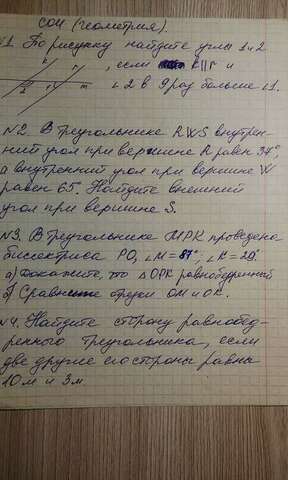 СОЧ (геометрия).
№1 По рисунку найдите углы 1 и 2
, если k||r и
∠2 в 9 раз больше ∠1.
k r
2 1 m
№2. В треугольнике RWS внутрен-
ний угол при вершине R равен 34°,
а внутренний угол при вершине W
равен 65. Найдите внешний
угол при вершине S.
№3. В треугольнике МРК проведена
биссектриса РО, ∠М = 87°, ∠К = 29°
а) докажите, что ΔОРК равнобедренный
б) Сравните отрезки ОМ и ОК.
№4. Найдите сторону равнобед-
ренного треугольника, если
две другие его стороны равны
10 м и 3 м